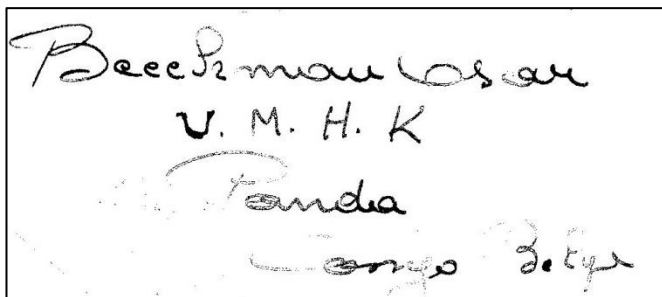 Beeckman Cesar
U. M. H. K
Panda
Congo Belge